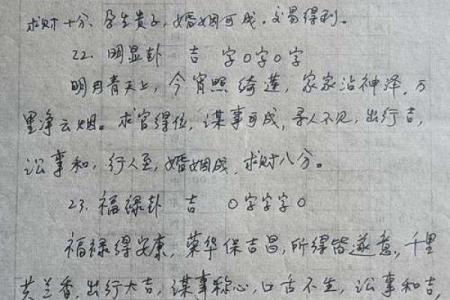 求财十分、孕生贵子，婚姻可成，交易得利。
22. 明显卦 吉 字0字0字
明月青天上，今宵照绮莲，家家沾神泽，万
里净云烟。求官得位，谋事可成，寻人不见，出行吉，
讼事和，行人至，婚姻成，求财八分。
23. 福禄卦 吉 0字字字0
福禄得安康，荣华保吉昌，所得皆遂意，千里
共兰香，出行大吉，谋事称心，口舌不生，讼事和吉，